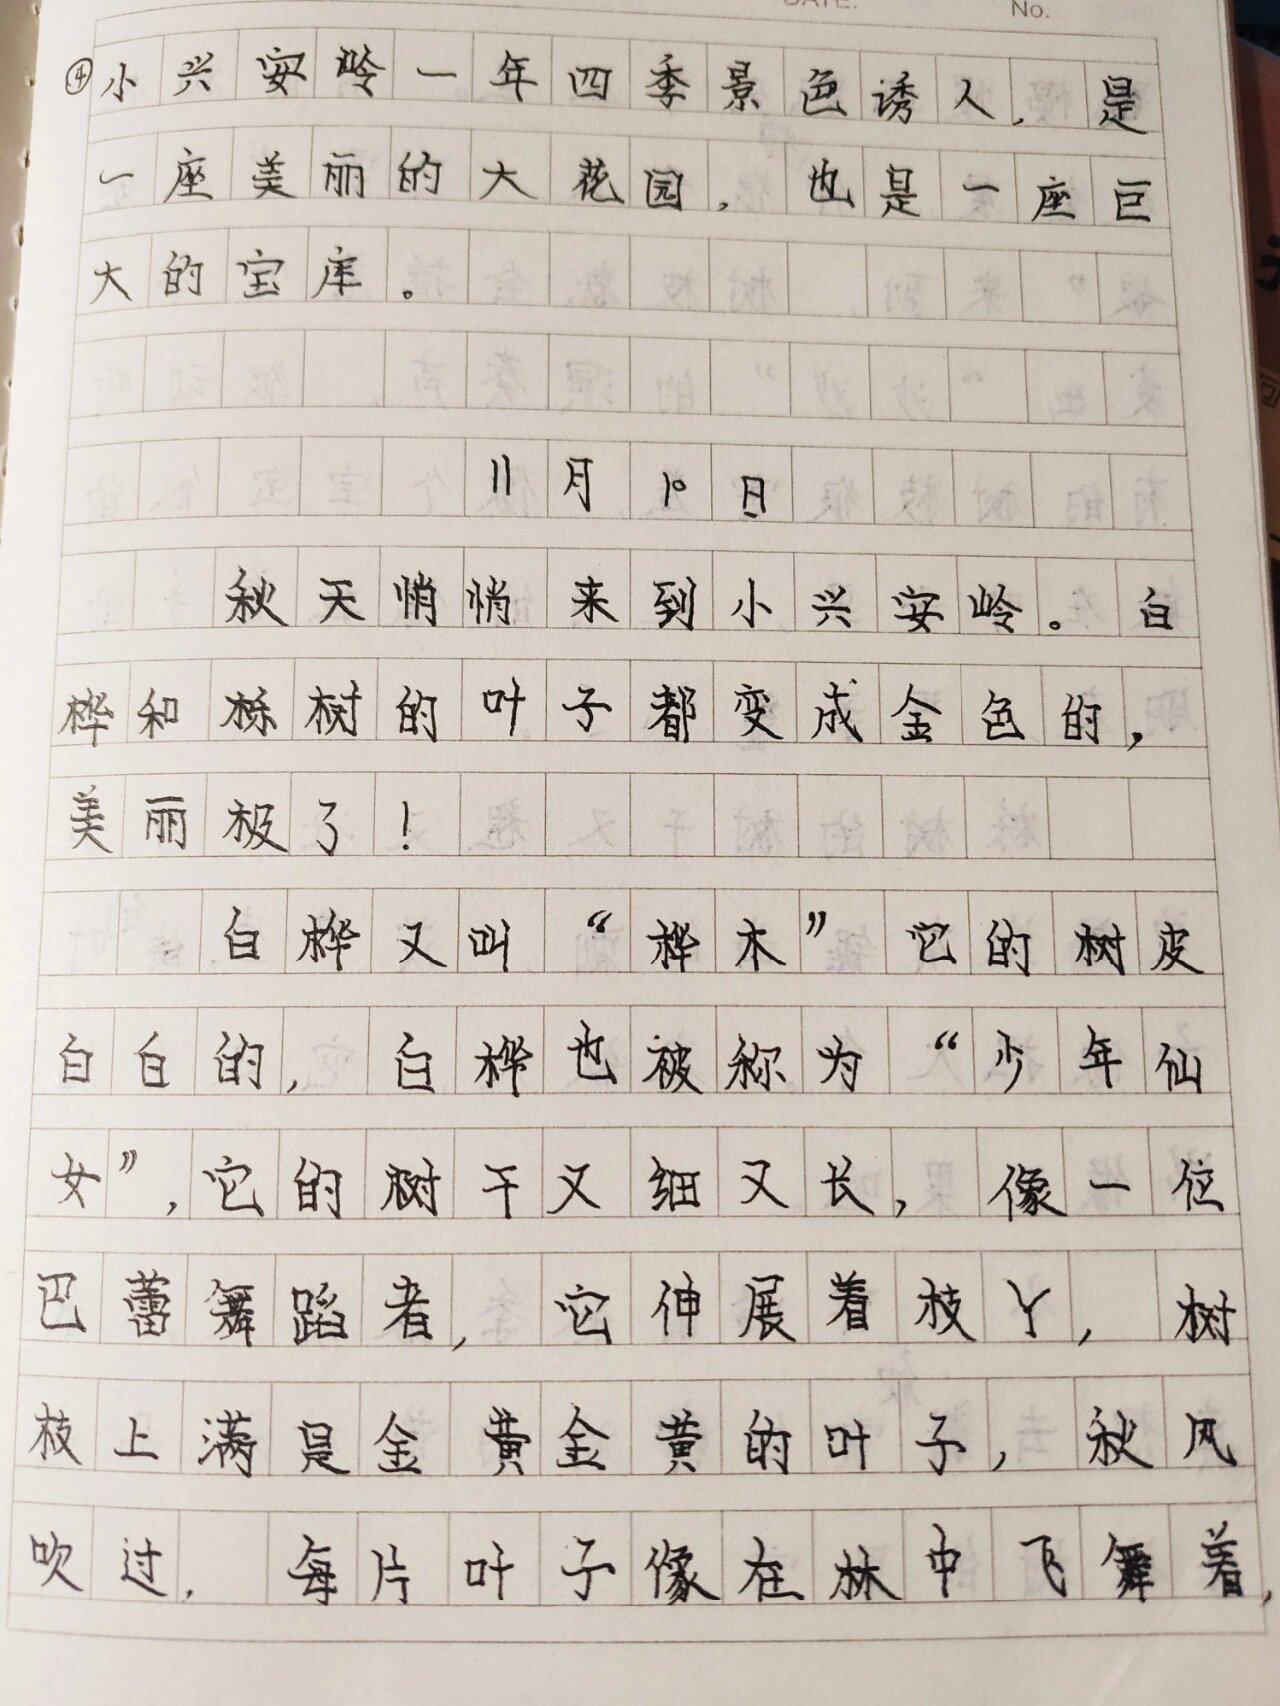 DATE. No.
④小兴安岭一年四季景色诱人，是
一座美丽的大花园，也是一座巨
大的宝库。
11月10日
秋天悄悄来到小兴安岭。白
桦和栎树的叶子都变成金色的，
美丽极了！
白桦又叫“桦木”它的树皮
白白的，白桦也被称为“少年仙
女”，它的树干又细又长，像一位
巴蕾舞蹈者，它伸展着枝丫，树
枝上满是金黄金黄的叶子，秋风
吹过，每片叶子像在林中飞舞着，